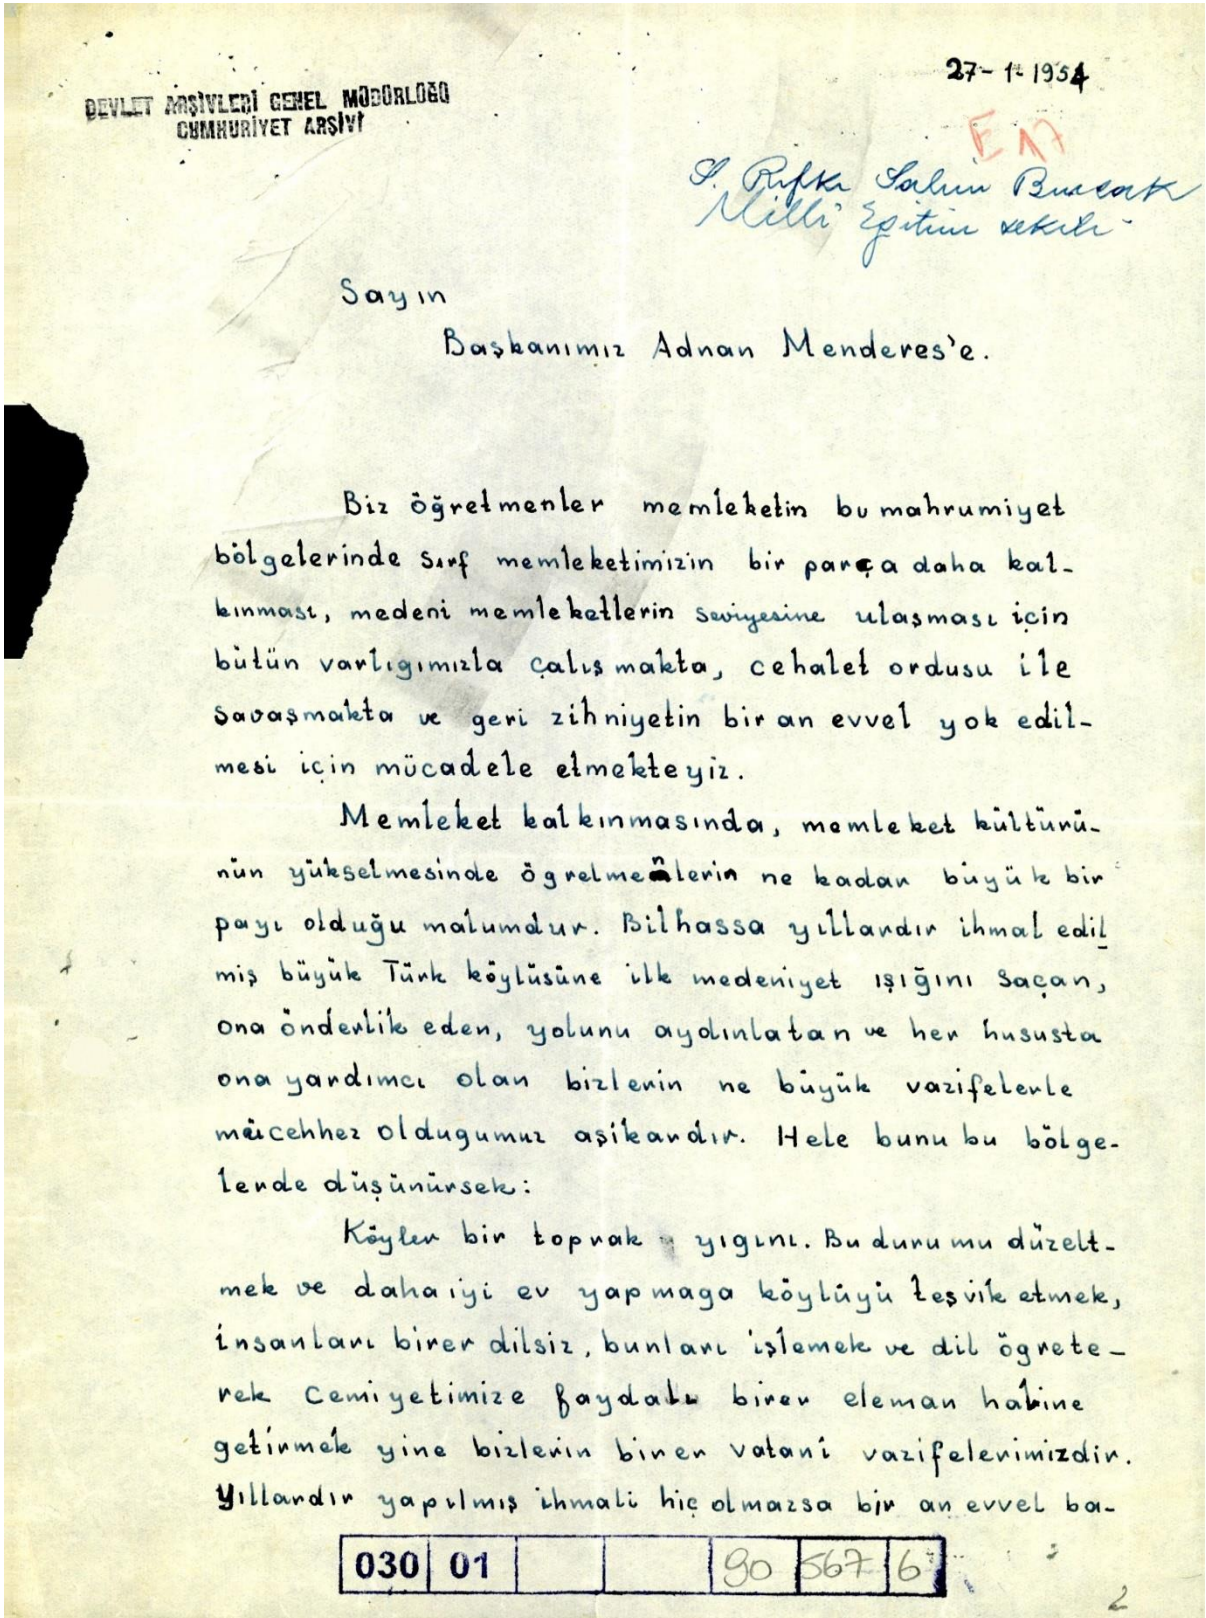 27-1-1954
DEVLET ARŞİVLERİ GENEL MÜDÜRLÜĞÜ
CUMHURİYET ARŞİVİ
E 17
S. Rıfkı Salim Burçak
Milli Eğitim vekili
Sayın
Başkanımız Adnan Menderes'e.
Biz öğretmenler memleketin bu mahrumiyet
bölgelerinde sırf memleketimizin bir parça daha kal-
kınması, medeni memleketlerin seviyesine ulaşması için
bütün varlıgımızla çalışmakta, cehalet ordusu ile
savaşmakta ve geri zihniyetin bir an evvel yok edil-
mesi için mücadele etmekteyiz.
Memleket kalkınmasında, memleket kültürü-
nün yükselmesinde ögretmenlerin ne kadar büyük bir
payı olduğu malumdur. Bilhassa yıllardır ihmal edil
miş büyük Türk köylüsüne ilk medeniyet ışığını saçan,
ona önderlik eden, yolunu aydınlatan ve her hususta
ona yardımcı olan bizlerin ne büyük vazifelerle
mücehhez oldugumuz aşikardır. Hele bunu bu bölge-
lerde düşünürsek:
Köyler bir toprak yıgını. Bu durumu düzelt-
mek ve daha iyi ev yapmaga köylüyü teşvik etmek,
insanları birer dilsiz, bunları işlemek ve dil ögrete-
rek cemiyetimize faydalı birer eleman haline
getirmek yine bizlerin birer vatani vazifelerimizdir.
Yıllardır yapılmış ihmali hiç olmazsa bir an evvel ba-
030 01 90 567 6
2